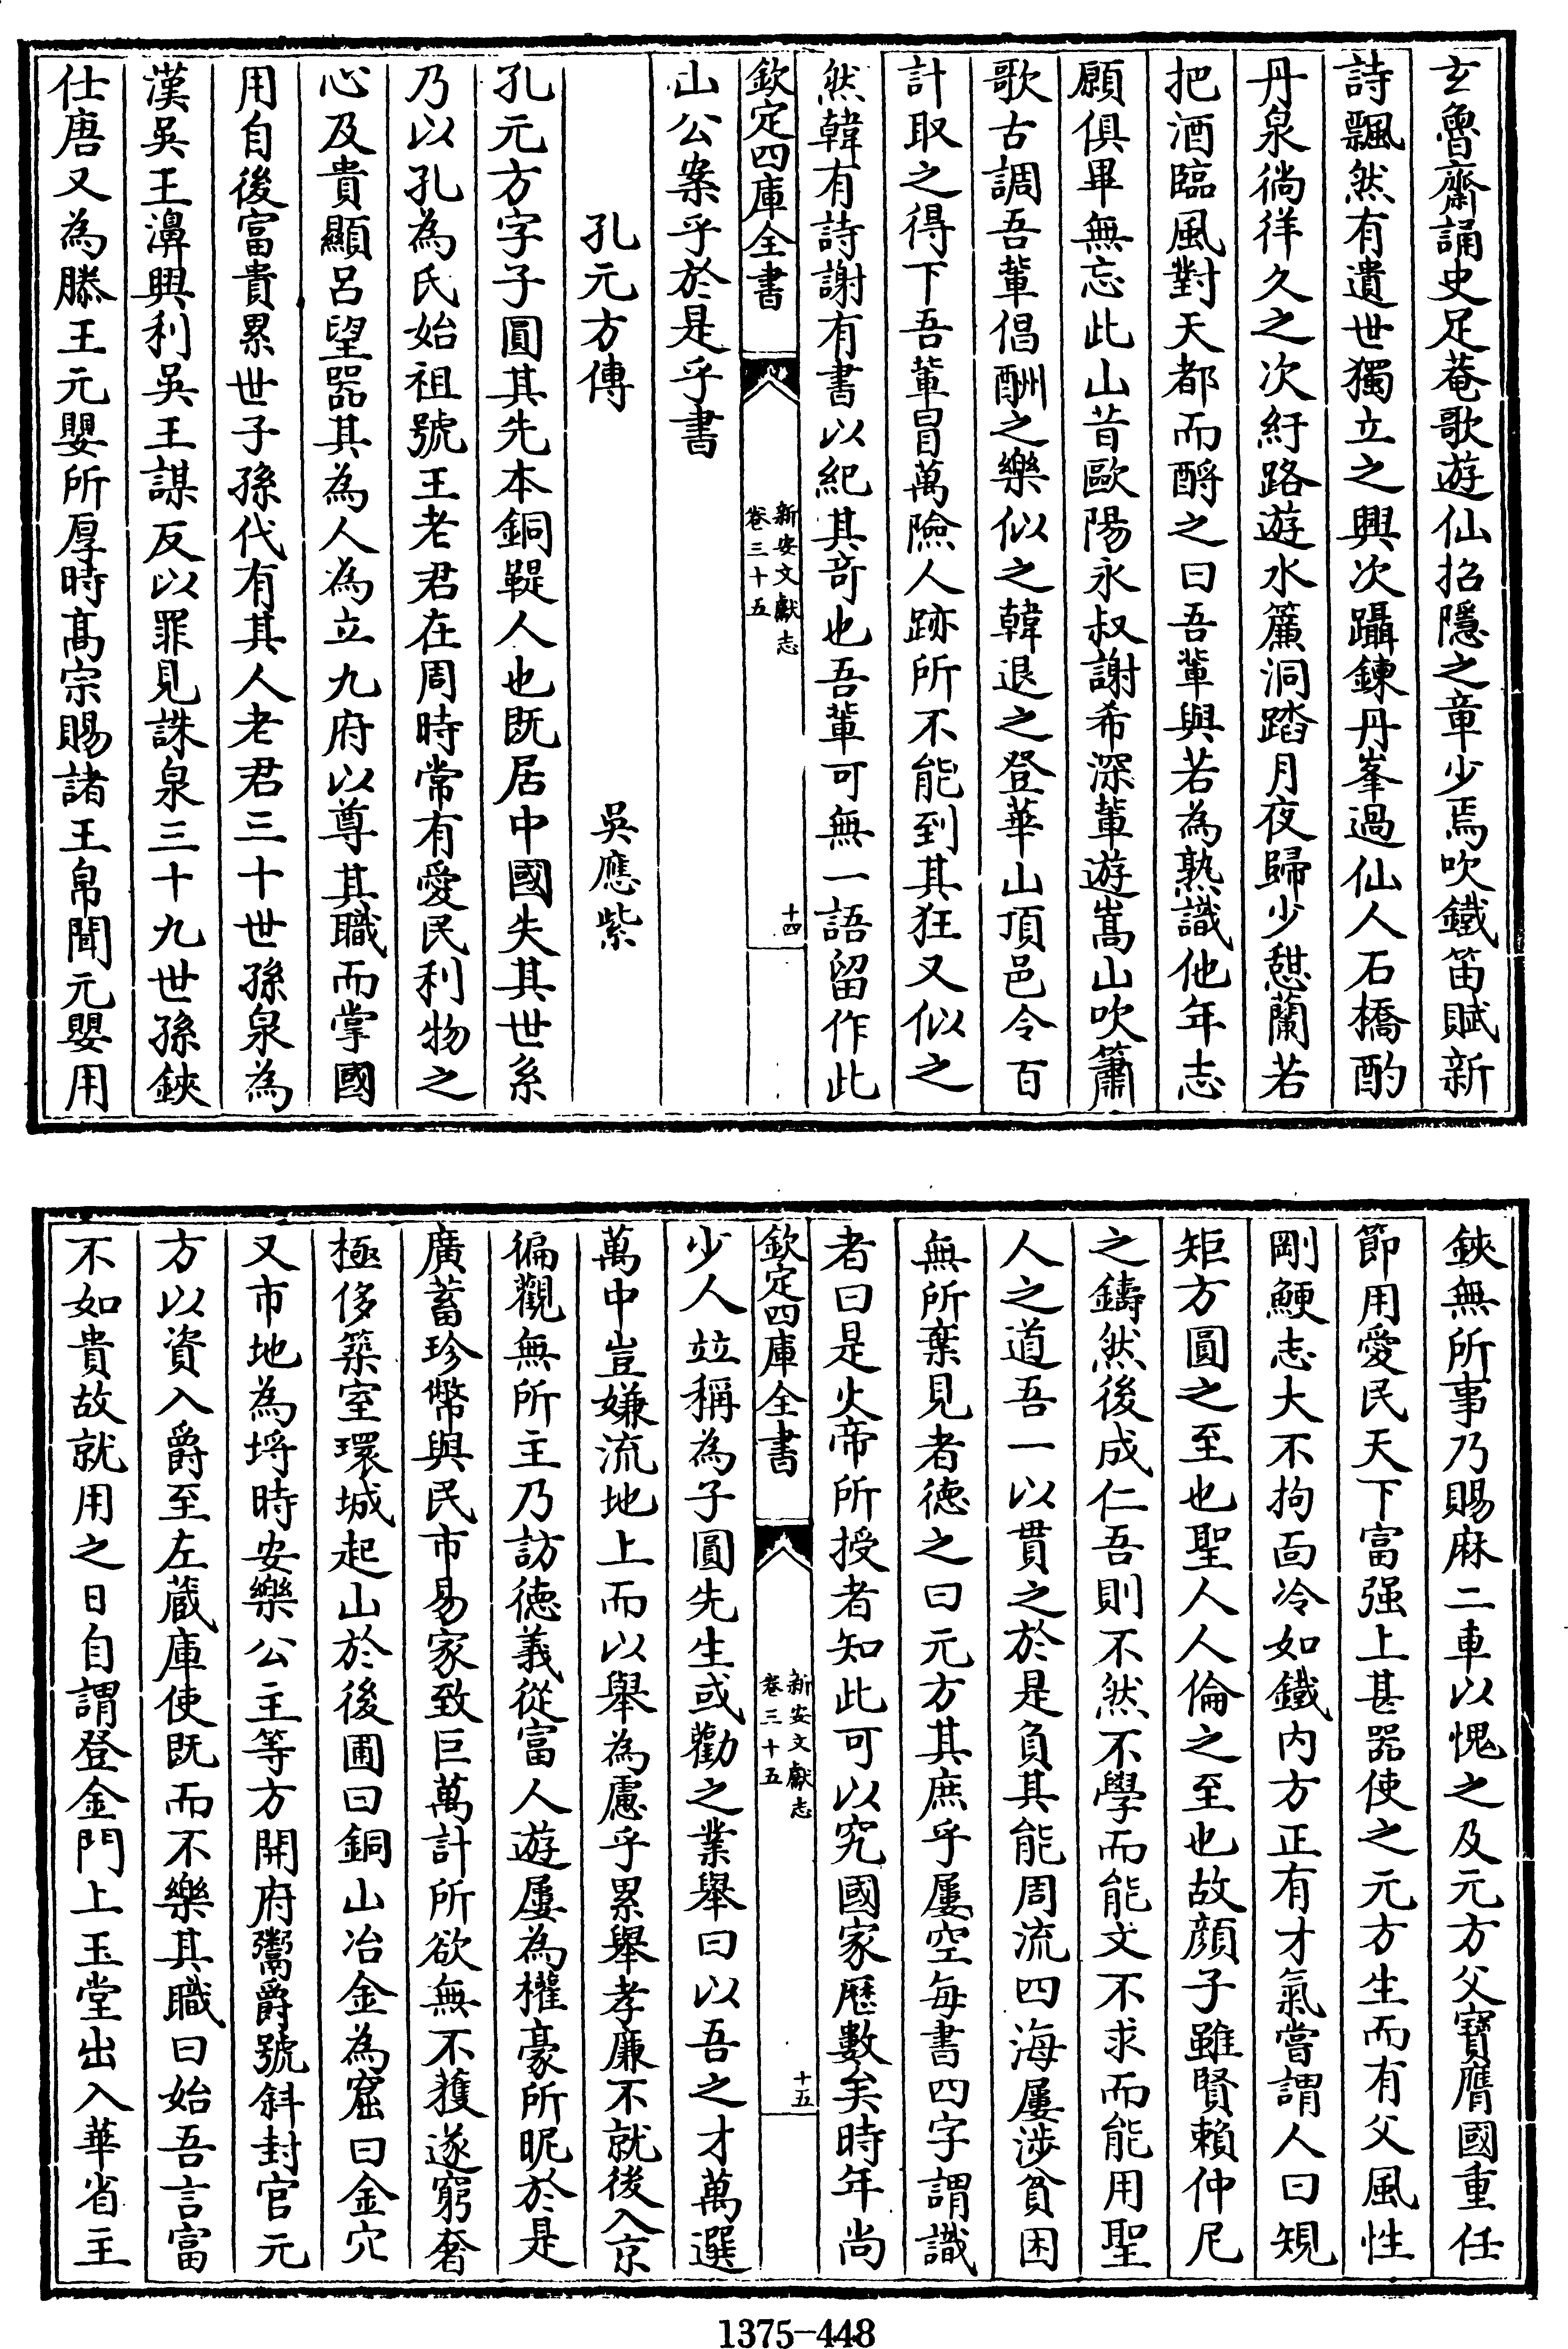 玄魯齋誦史足菴歌遊仙招隱之章少焉吹鐵笛賦新
詩飄然有遺世獨立之興次躡鍊丹峯過仙人石橋酌
丹泉徜徉久之次紆路遊水簾洞踏月夜歸少憇蘭若
把酒臨風對天都而酹之曰吾輩與若為熟識他年志
願俱畢無忘此山昔歐陽永叔謝希深輩遊嵩山吹簫
歌古調吾輩倡酬之樂似之韓退之登華山頂邑令百
計取之得下吾輩冒萬險人跡所不能到其狂又似之
然韓有詩謝有書以紀其竒也吾輩可無一語留作此
欽定四庫全書
新安文獻志
卷三十五
十四
山公案乎於是乎書
孔元方傳
吳應紫
孔元方字子圓其先本銅鞮人也既居中國失其世系
乃以孔為氏始祖號王老君在周時常有愛民利物之
心及貴顯呂望器其為人為立九府以尊其職而掌國
用自後富貴累世子孫代有其人老君三十世孫泉為
漢吳王濞興利吳王謀反以罪見誅泉三十九世孫鋏
仕唐又為滕王元嬰所厚時髙宗賜諸王帛聞元嬰用
鋏無所事乃賜麻二車以愧之及元方父寳膺國重任
節用愛民天下富强上甚器使之元方生而有父風性
剛鯁志大不拘面冷如鐵内方正有才氣嘗謂人曰規
矩方圓之至也聖人人倫之至也故顔子雖賢賴仲尼
之鑄然後成仁吾則不然不學而能文不求而能用聖
人之道吾一以貫之於是負其能周流四海屢涉貧困
無所棄見者徳之曰元方其庶乎屢空每書四字謂識
者曰是火帝所授者知此可以究國家歴數矣時年尚
欽定四庫全書
新安文獻志
卷三十五
十五
少人竝稱為子圓先生或勸之業舉曰以吾之才萬選
萬中豈嫌流地上而以舉為慮乎累舉孝廉不就後入京
徧觀無所主乃訪徳義從富人遊屢為權豪所昵於是
廣蓄珍幣與民市易家致巨萬計所欲無不獲遂窮奢
極侈築室環城起山於後圃曰銅山冶金為窟曰金穴
又市地為埒時安樂公主等方開府鬻爵號斜封官元
方以資入爵至左蔵庫使既而不樂其職曰始吾言富
不如貴故就用之日自謂登金門上玉堂出入華省主
1375-448